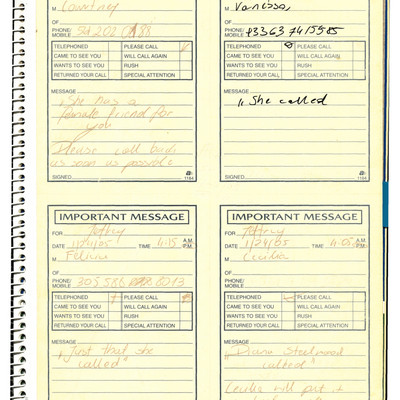 M Courtney
OF
PHONE/
MOBILE
TELEPHONED PLEASE CALL
CAME TO SEE YOU WILL CALL AGAIN
WANTS TO SEE YOU RUSH
RETURNED YOUR CALL SPECIAL ATTENTION
MESSAGE
"She has a
friend for
you
Please call back
as soon as possible
SIGNED 1184
M Vanessa,
OF
PHONE/
MOBILE
TELEPHONED PLEASE CALL
CAME TO SEE YOU WILL CALL AGAIN
WANTS TO SEE YOU RUSH
RETURNED YOUR CALL SPECIAL ATTENTION
MESSAGE
"She called
SIGNED 1184
IMPORTANT MESSAGE
FOR
DATE TIME 4:15 A.M. P.M.
M
OF
PHONE/
MOBILE 305 586
TELEPHONED PLEASE CALL
CAME TO SEE YOU WILL CALL AGAIN
WANTS TO SEE YOU RUSH
RETURNED YOUR CALL SPECIAL ATTENTION
MESSAGE
"Just that she
called"
IMPORTANT MESSAGE
FOR
DATE 1/29/05 TIME 4:05 A.M. P.M.
M Cecilia
OF
PHONE/
MOBILE
TELEPHONED PLEASE CALL
CAME TO SEE YOU WILL CALL AGAIN
WANTS TO SEE YOU RUSH
RETURNED YOUR CALL SPECIAL ATTENTION
MESSAGE
called"
Cecilia will put it